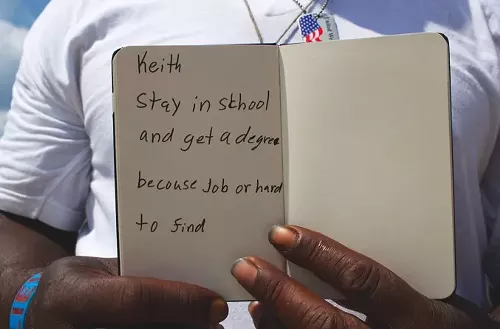 Keith
Stay in school
and get a degree
becouse Job or hard
to find